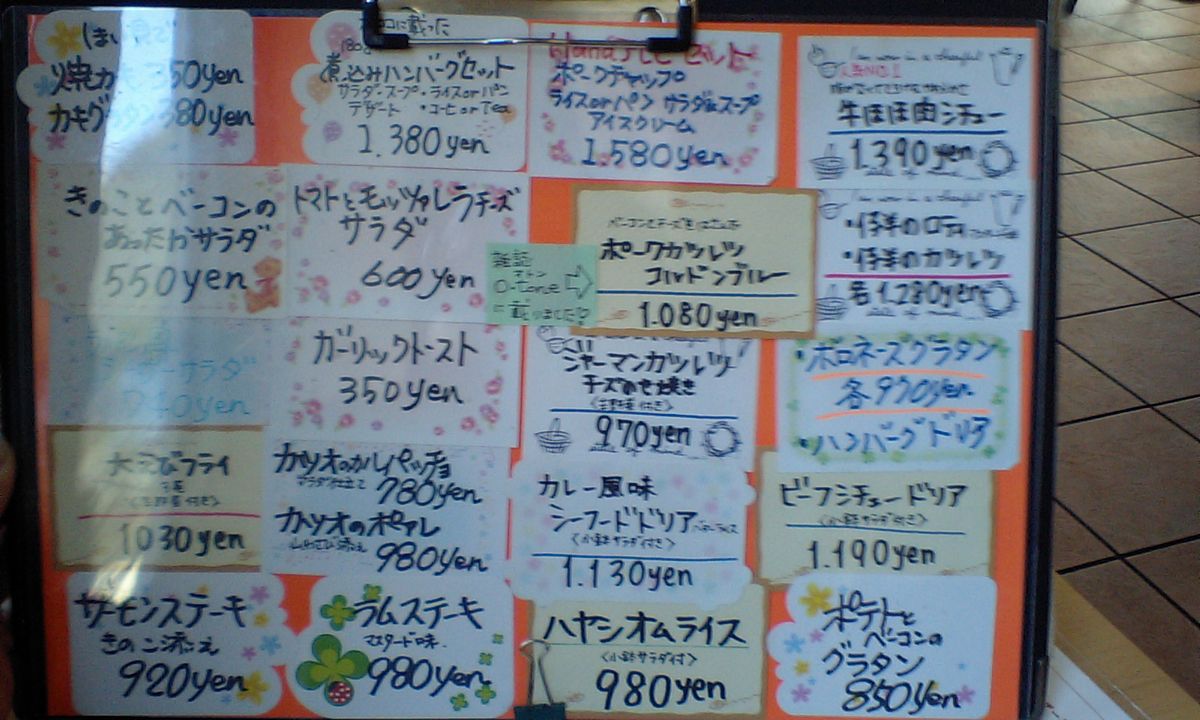 カキグラタン 380yen
180g
煮込みハンバーグセット
サラダ・スープ・ライスorパン
デザート ・コーヒーorTea
1.380yen
ポークチャップ
ライスorパン サラダ&スープ
アイスクリーム
1.580yen
牛ほほ肉シチュー
1.390yen
きのことベーコンの
あったかサラダ
550yen
トマトとモッツァレラチーズ
サラダ
600yen
雑誌
O-tone
に載りました
ベーコンとチーズをはさんだ
ポークカツレツ
コルドンブルー
1.080yen
・仔羊のロティ
・仔羊のカツレツ
各1.280yen
サラダ
ガーリックトースト
350yen
ジャーマンカツレツ
チーズのせ焼き
970yen
・ボロネーズグラタン
各970yen
・ハンバーグドリア
大えびフライ
1030yen
カツオのカルパッチョ
サラダ仕立て 780yen
カツオのポアレ
980yen
カレー風味
シーフードドリア バターライス
<小鉢サラダ付き>
1.130yen
ビーフシチュードリア
<小鉢サラダ付き>
1.190yen
サーモンステーキ
きのこ添え
920yen
ラムステーキ
マスタード味
980yen
ハヤシオムライス
<小鉢サラダ付>
980yen
ポテトと
ベーコンの
グラタン
850yen